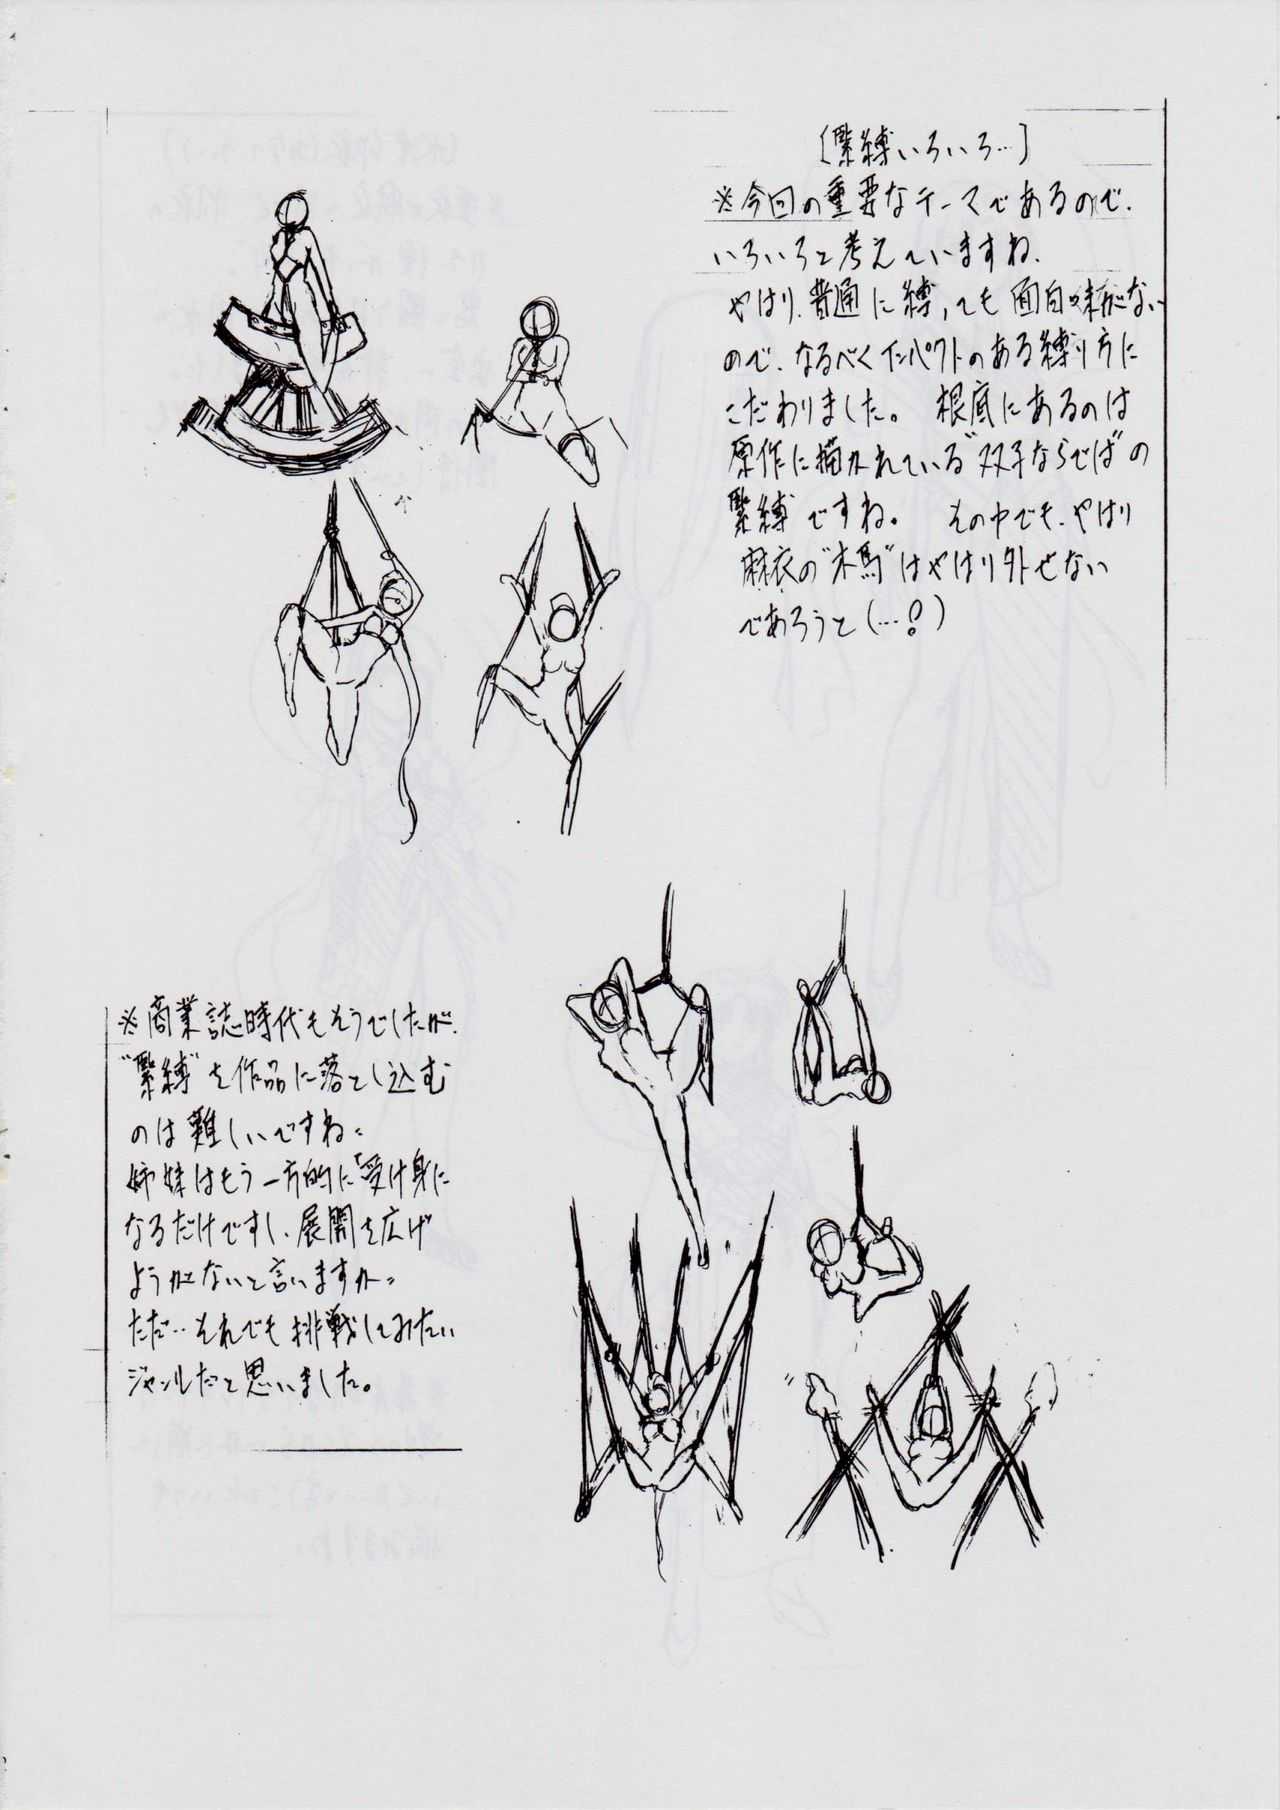 〔緊縛いろいろ…〕
※今回の重要なテーマであるので、
いろいろと考えていますね、
やはり、普通に縛っても面白味がない
ので、なるべくインパクトのある縛り方に
こだわりました。 根底にあるのは
原作に描かれている“双子ならでば”の
緊縛ですね。 その中でも、やはり
麻衣の“木馬”はやはり外せない
であろうと(…?)
※商業誌時代もそうでしたが、
“緊縛”を作品に落とし込む
のは難しいですね。
姉妹はもう一方的に「受け身に
なるだけですし、展開を広げ
ようがないと言いますか。
ただ…それでも挑戦してみたい
ジャンルだと思いました。